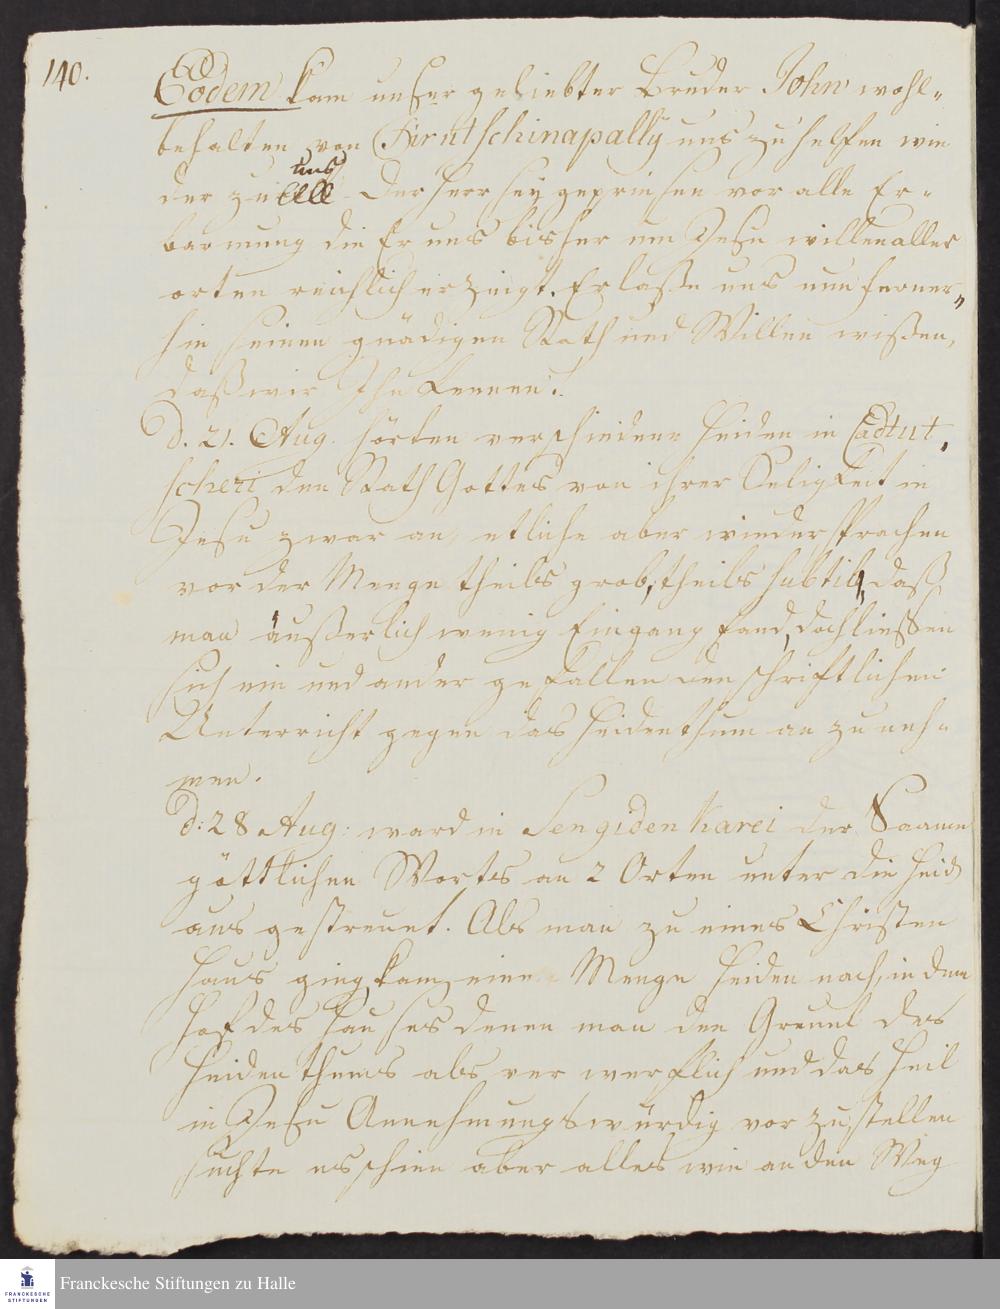 140.
Eodem kam unser geliebter Bruder John wohl-
behalten von Tirutschinapally uns zu helfen wie
der zu uns. Der Herr sey gepriesen vor alle Er-
barmung die Er uns bisher um Jesu willen aller
orten reichlich erzeigt. Er laße uns nun ferner-
hin seinen gnädigen Rath und Willen wißen,
daß wir Ihn kennen.
d. 21. Aug. hörten verschiedene Heiden in Cadtut,
scheri den Rath Gottes von ihrer Seligkeit in
Jesu zwar an, etliche aber wiedersprachen
vor der Menge theils grob, theils subtil, daß
man äußerlich wenig Eingang fand, doch ließen
sich ein und ander gefallen den schriftlichen
Unterricht gegen das Heidenthum an zu neh-
men.
d: 28 Aug: ward in Sengidenkarei der Saame
göttlichen Worts an 2 Orten unter die Heid
aus gestreuet. Als man zu eines Christen
Haus ging, kam eine Menge Heiden nach, in den
Hof des Hauses denen man den Greuel des
Heidenthums als verwerflich und das Heil
in Jesu Annehmungswürdig vor zu stellen
suchte es schien aber alles wie an den Weg
FRANCKESCHE
STIFTUNGEN
Franckesche Stiftungen zu Halle